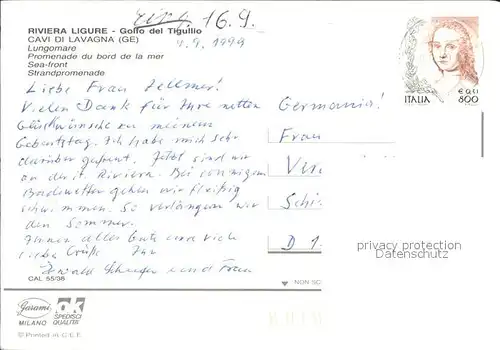 eing. 16.9.
RIVIERA LIGURE - Golfo del Tigullio
CAVI DI LAVAGNA (GE)
Lungomare
Promenade du bord de la mer
Sea-front
Strandpromenade
4.9.1999
ITALIA € 0,41 800
Liebe Frau Zellmer!
Vielen Dank für Ihre netten
Glückwünsche zu meinem
Geburtstag. Ich habe mich sehr
darüber gefreut. Jetzt sind wir
an der it. Riviera. Bei sonnigem
Badewetter gehen wir fleißig
schwimmen. So verlängern wir
den Sommer.
Ihnen alles Gute und viele
liebe Grüße Ihr
und Frau
Germania!
Frau
Vire
Schi
D 1
privacy protection
Datenschutz
CAL 55/38
NON SC
Garami
MILANO
ok
SPEDISCI
QUALITA'
© Printed in C.E.E.